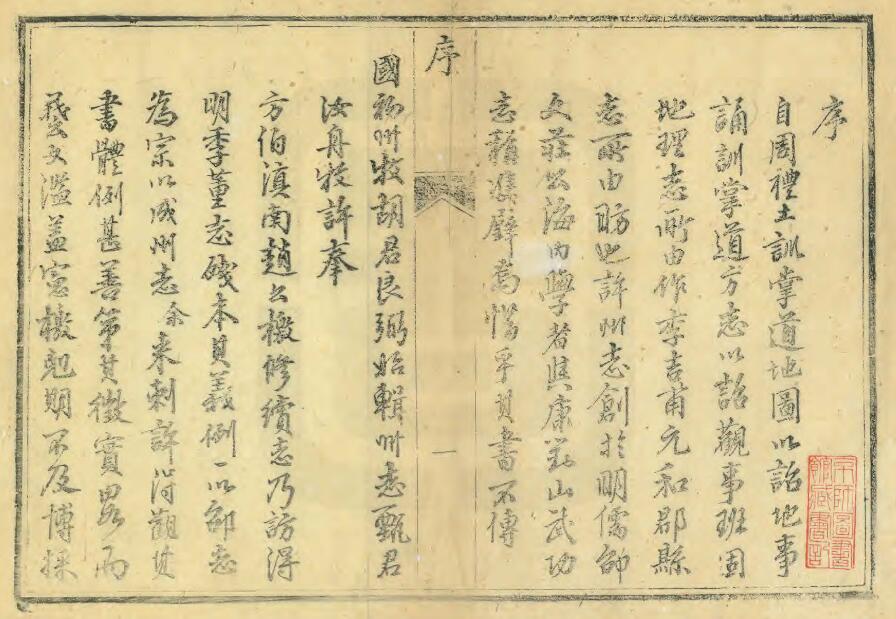 序
自周禮土訓掌道地圖以詔地事
誦訓掌道方志以詔觀事班固
地理志所由作李吉甫元和郡縣
志所由昉也許州志創於明儒邵
文莊公海内學者與康對山武功
志籍甚齊名惜乎其書不傳
序
一
國初州牧胡君良弼始輯州志甄君
汝舟牧許奉
方伯滇南趙公檄修續志乃訪得
明季董志殘本其義例一以邵志
為宗以成州志余來刺許得觀其
書體例甚善第其徵實畧而
藝文濫蓋憲檄尅期不及博採